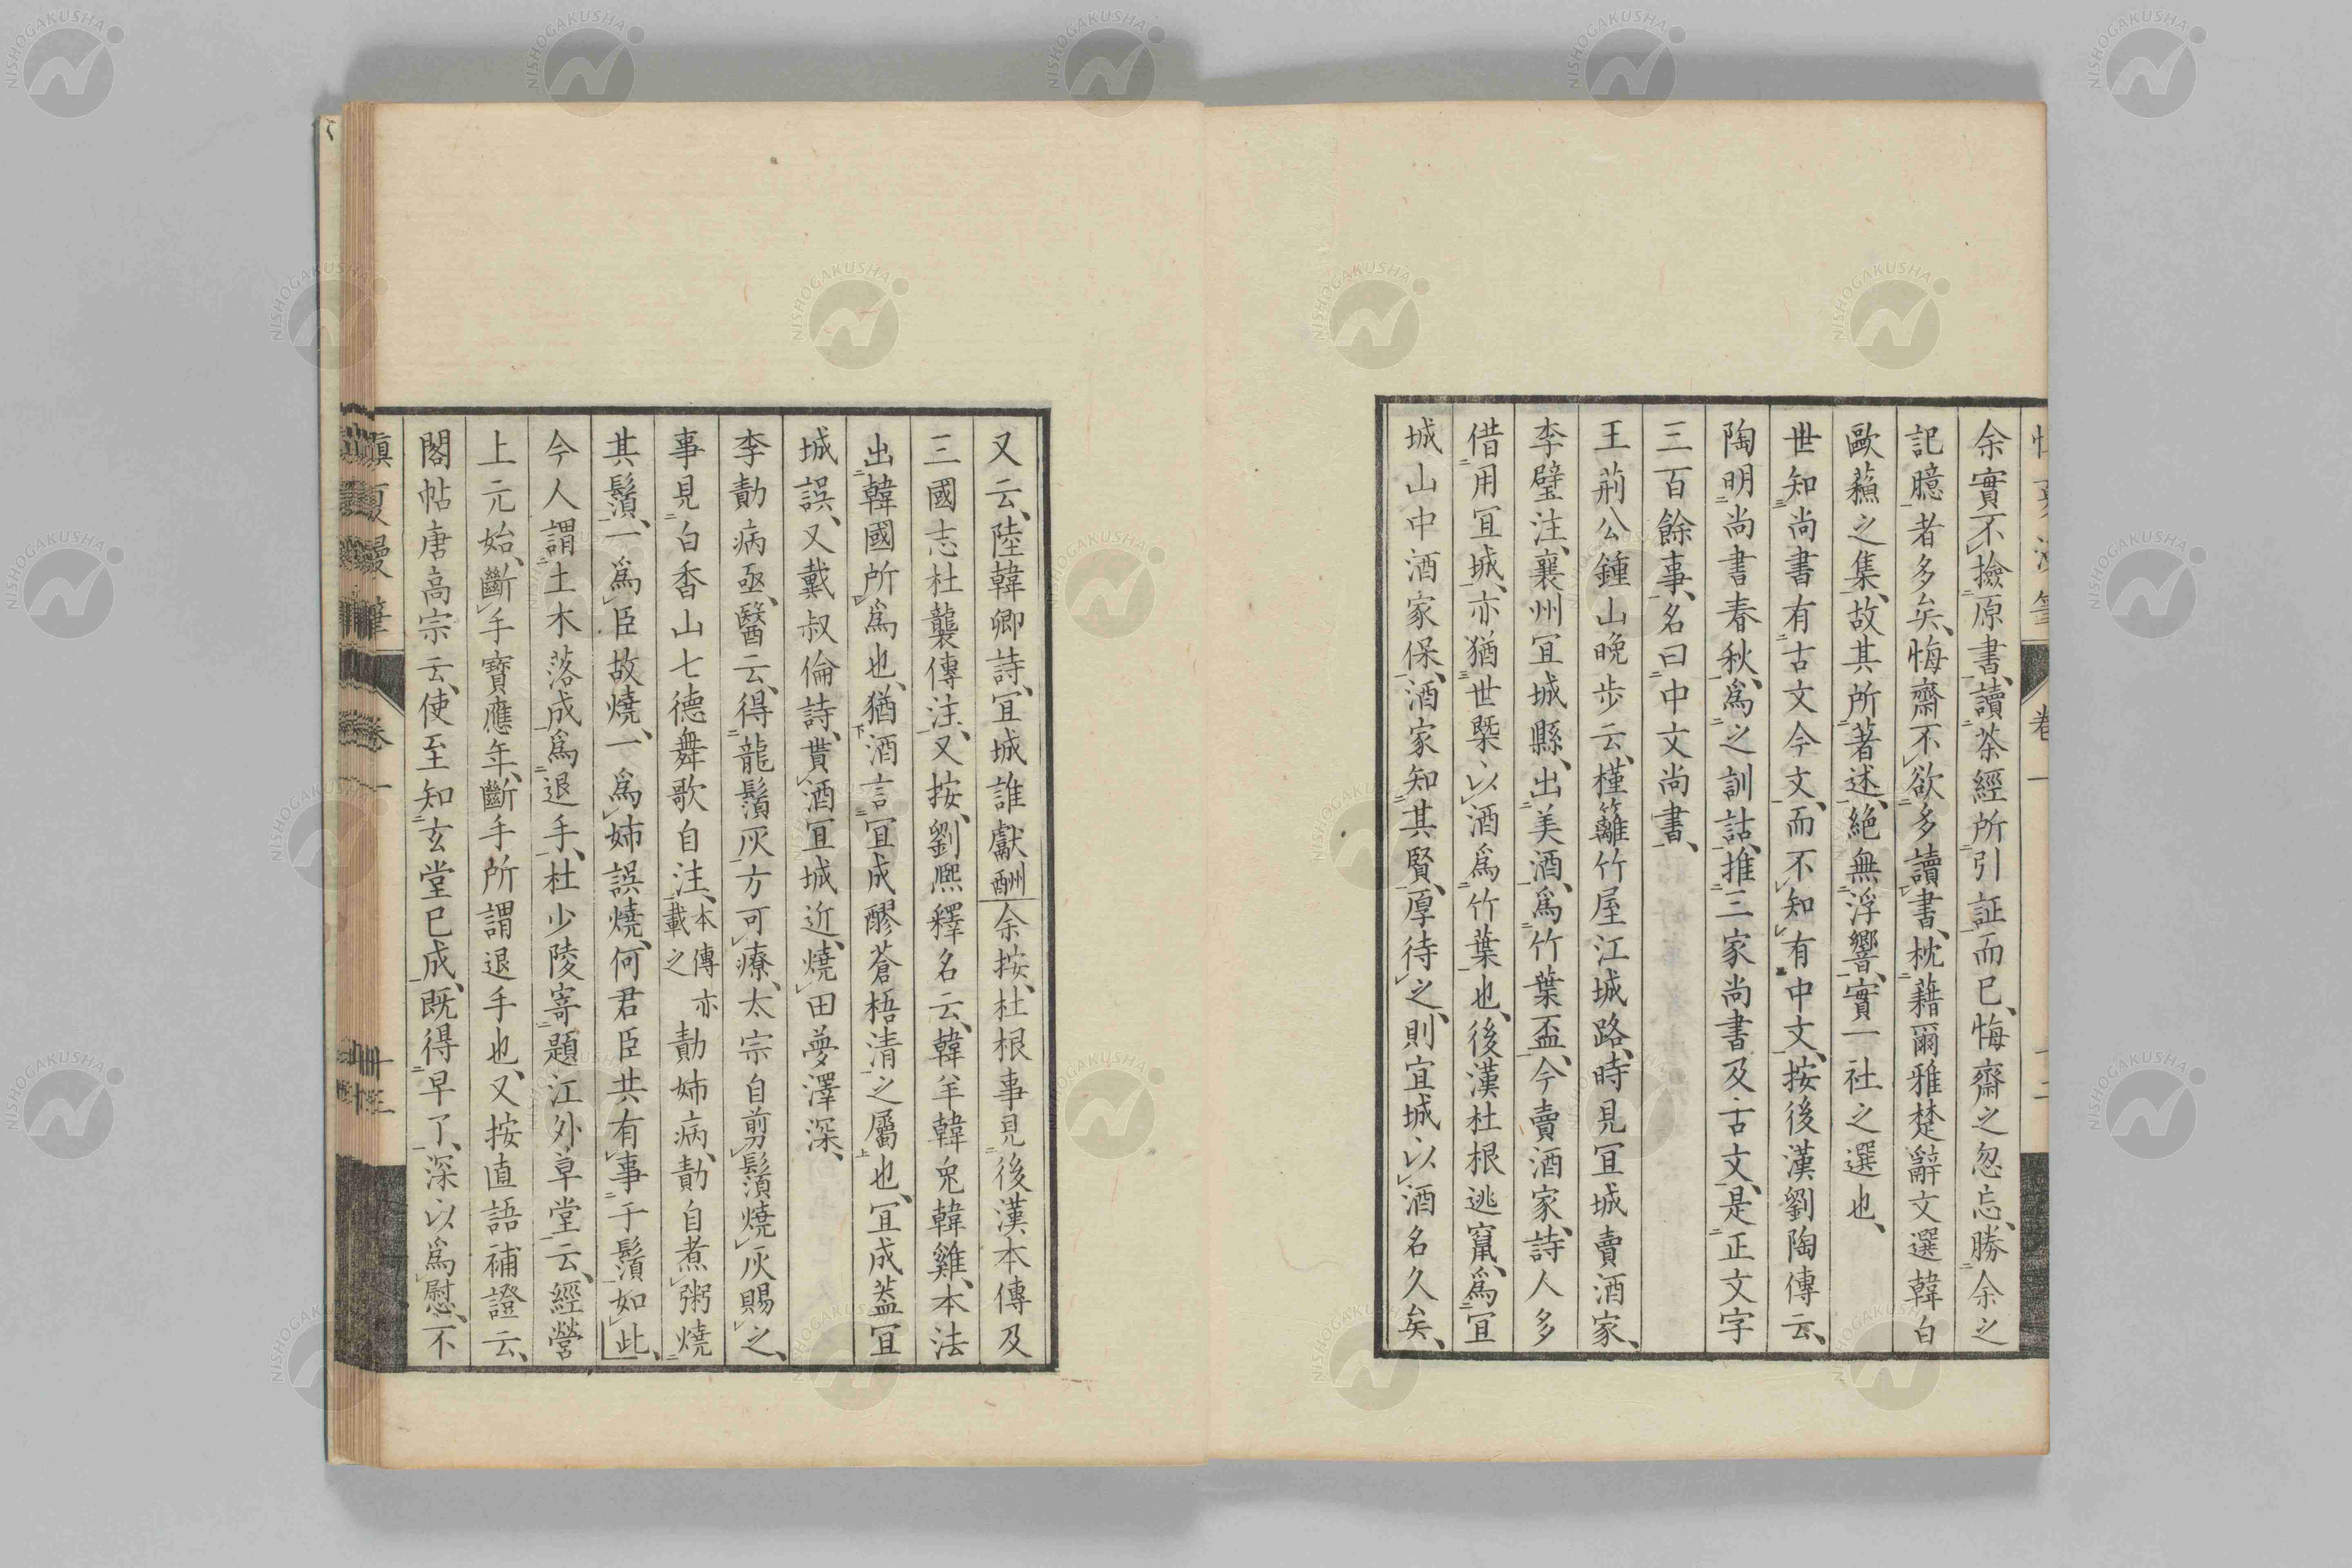 余實不撿原書、讀茶經所引証而已、悔齋之忽忘、勝余之
記臆者多矣、悔齋不欲多讀書、枕藉爾雅楚辭文選韓白
歐蘓之集、故其所著述、絕無浮響、實一社之選也、
世知尚書有古文今文、而不知有中文、按後漢劉陶傳云、
陶明尚書春秋、爲之訓詁、推三家尚書及古文、是正文字
三百餘事、名曰中文尚書、
王荊公鍾山晚步云、槿籬竹屋江城路、時見宜城賣酒家、
李璧注、襄州宜城縣、出美酒、爲竹葉盃、今賣酒家、詩人多
借用宜城、亦猶世槩以酒爲竹葉也、後漢杜根逃竄、爲宜
城山中酒家保、酒家知其賢、厚待之、則宜城以酒名久矣、
又云、陸韓卿詩、宜城誰獻酬余按、杜根事見後漢本傳及
三國志杜襲傳注、又按、劉熙釋名云、韓羊韓兔韓雞、本法
出韓國所爲也、猶酒言宜成醪蒼梧清之屬也、宜成蓋宜
城誤、又戴叔倫詩、貰酒宜城近、燒田夢澤深、
李勣病亟、醫云、得龍鬚灰方可療、太宗自剪鬚燒灰賜之、
事見白香山七德舞歌自注、本傳亦載之勣姉病、勣自煮粥燒
其鬚、一爲臣故燒、一爲姉誤燒、何君臣共有事于鬚如此、
今人謂土木落成爲退手、杜少陵寄題江外草堂云、經營
上元始、斷手寶應年、斷手所謂退手也、又按直語補證云、
閣帖唐高宗云、使至知玄堂已成、既得早了、深以爲慰、不
卷一